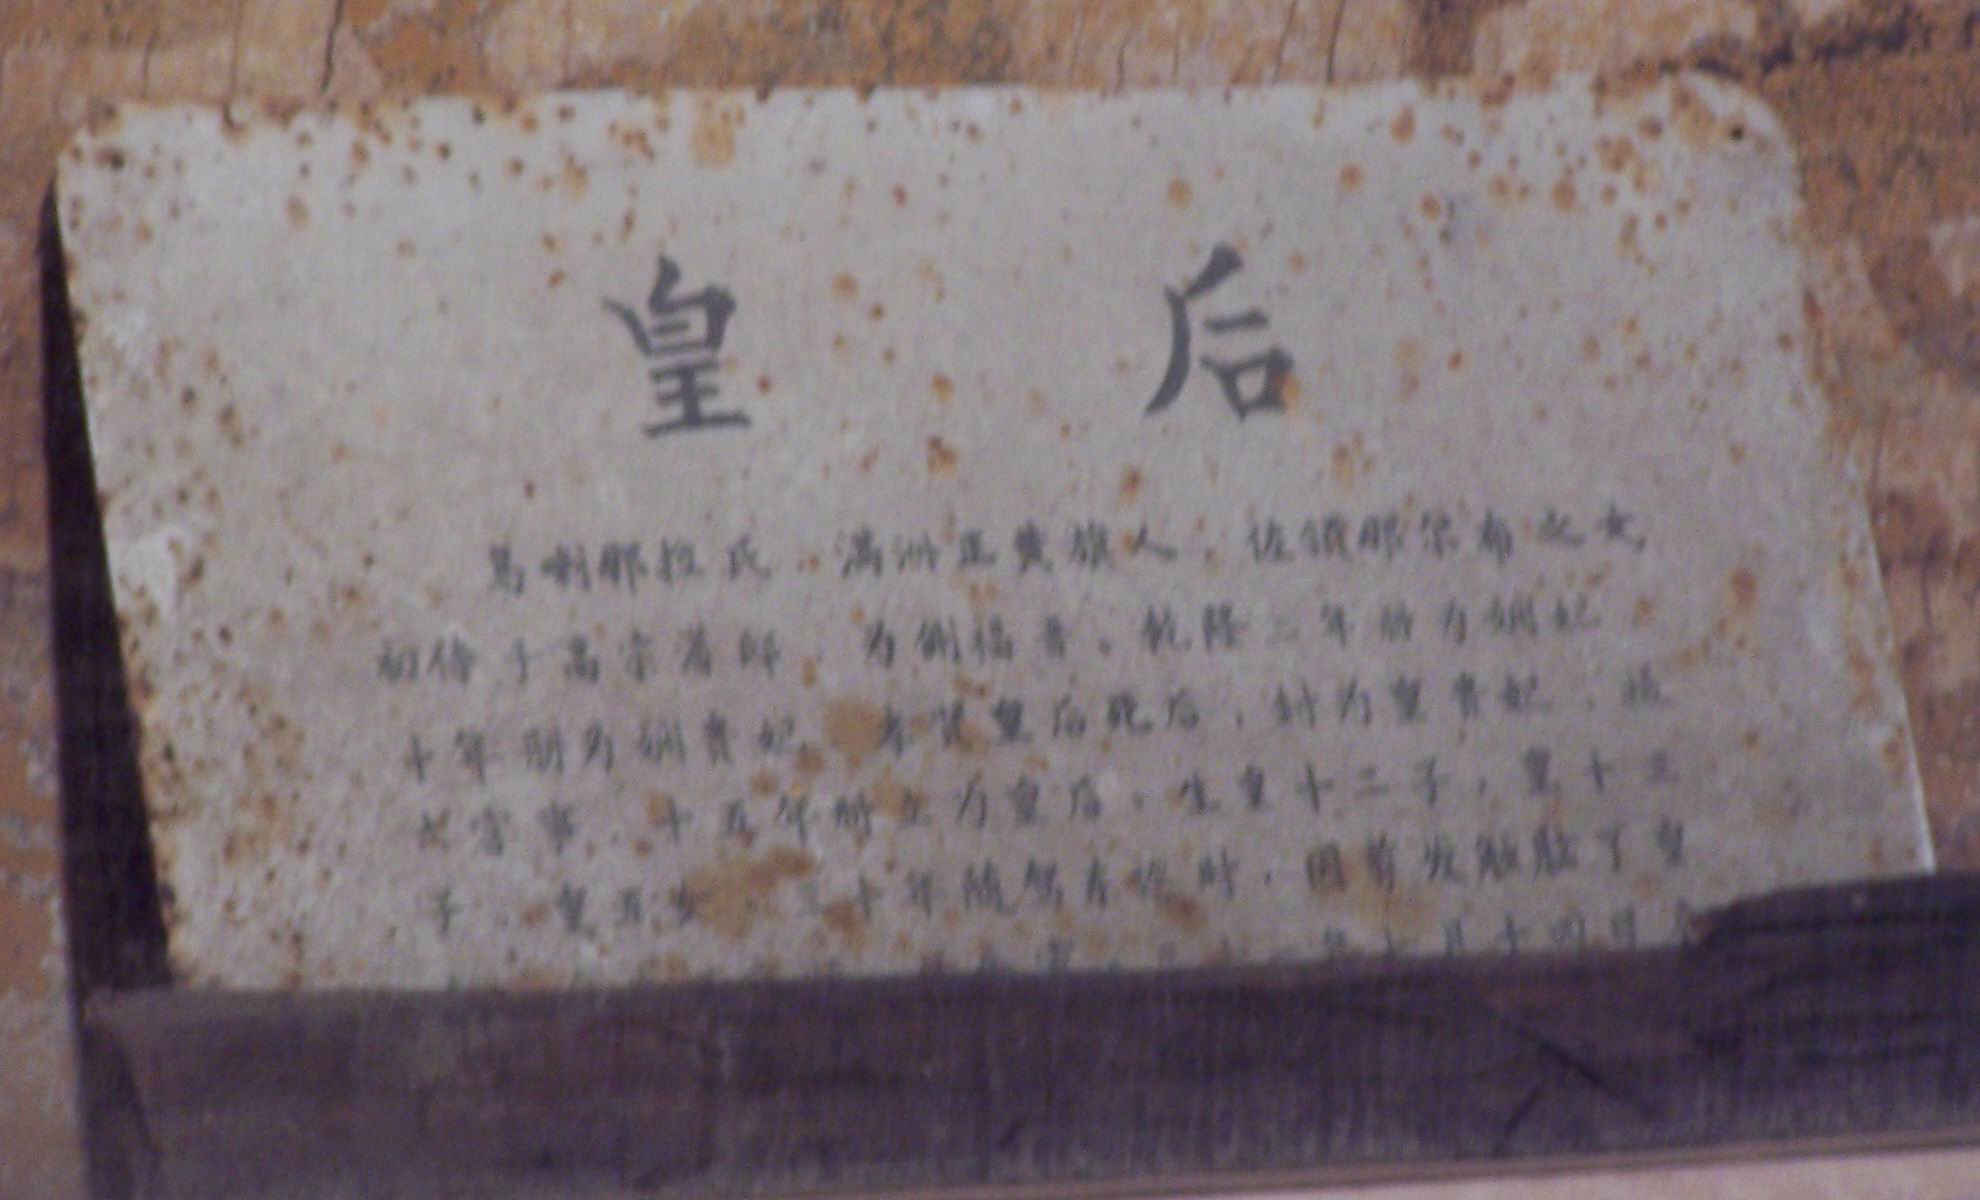 皇 后
乌喇那拉氏，满洲正黄旗人，佐领那尔布之女，
初侍于高宗潜邸，为侧福晋。乾隆二年册为娴妃，
十年册为娴贵妃，孝贤皇后死后，封为皇贵妃，摄
六宫事，十五年册立为皇后，生皇十二子，皇十三
子，皇五女。三十年随驾南巡时，因剪发触脑了皇
年七月十四日